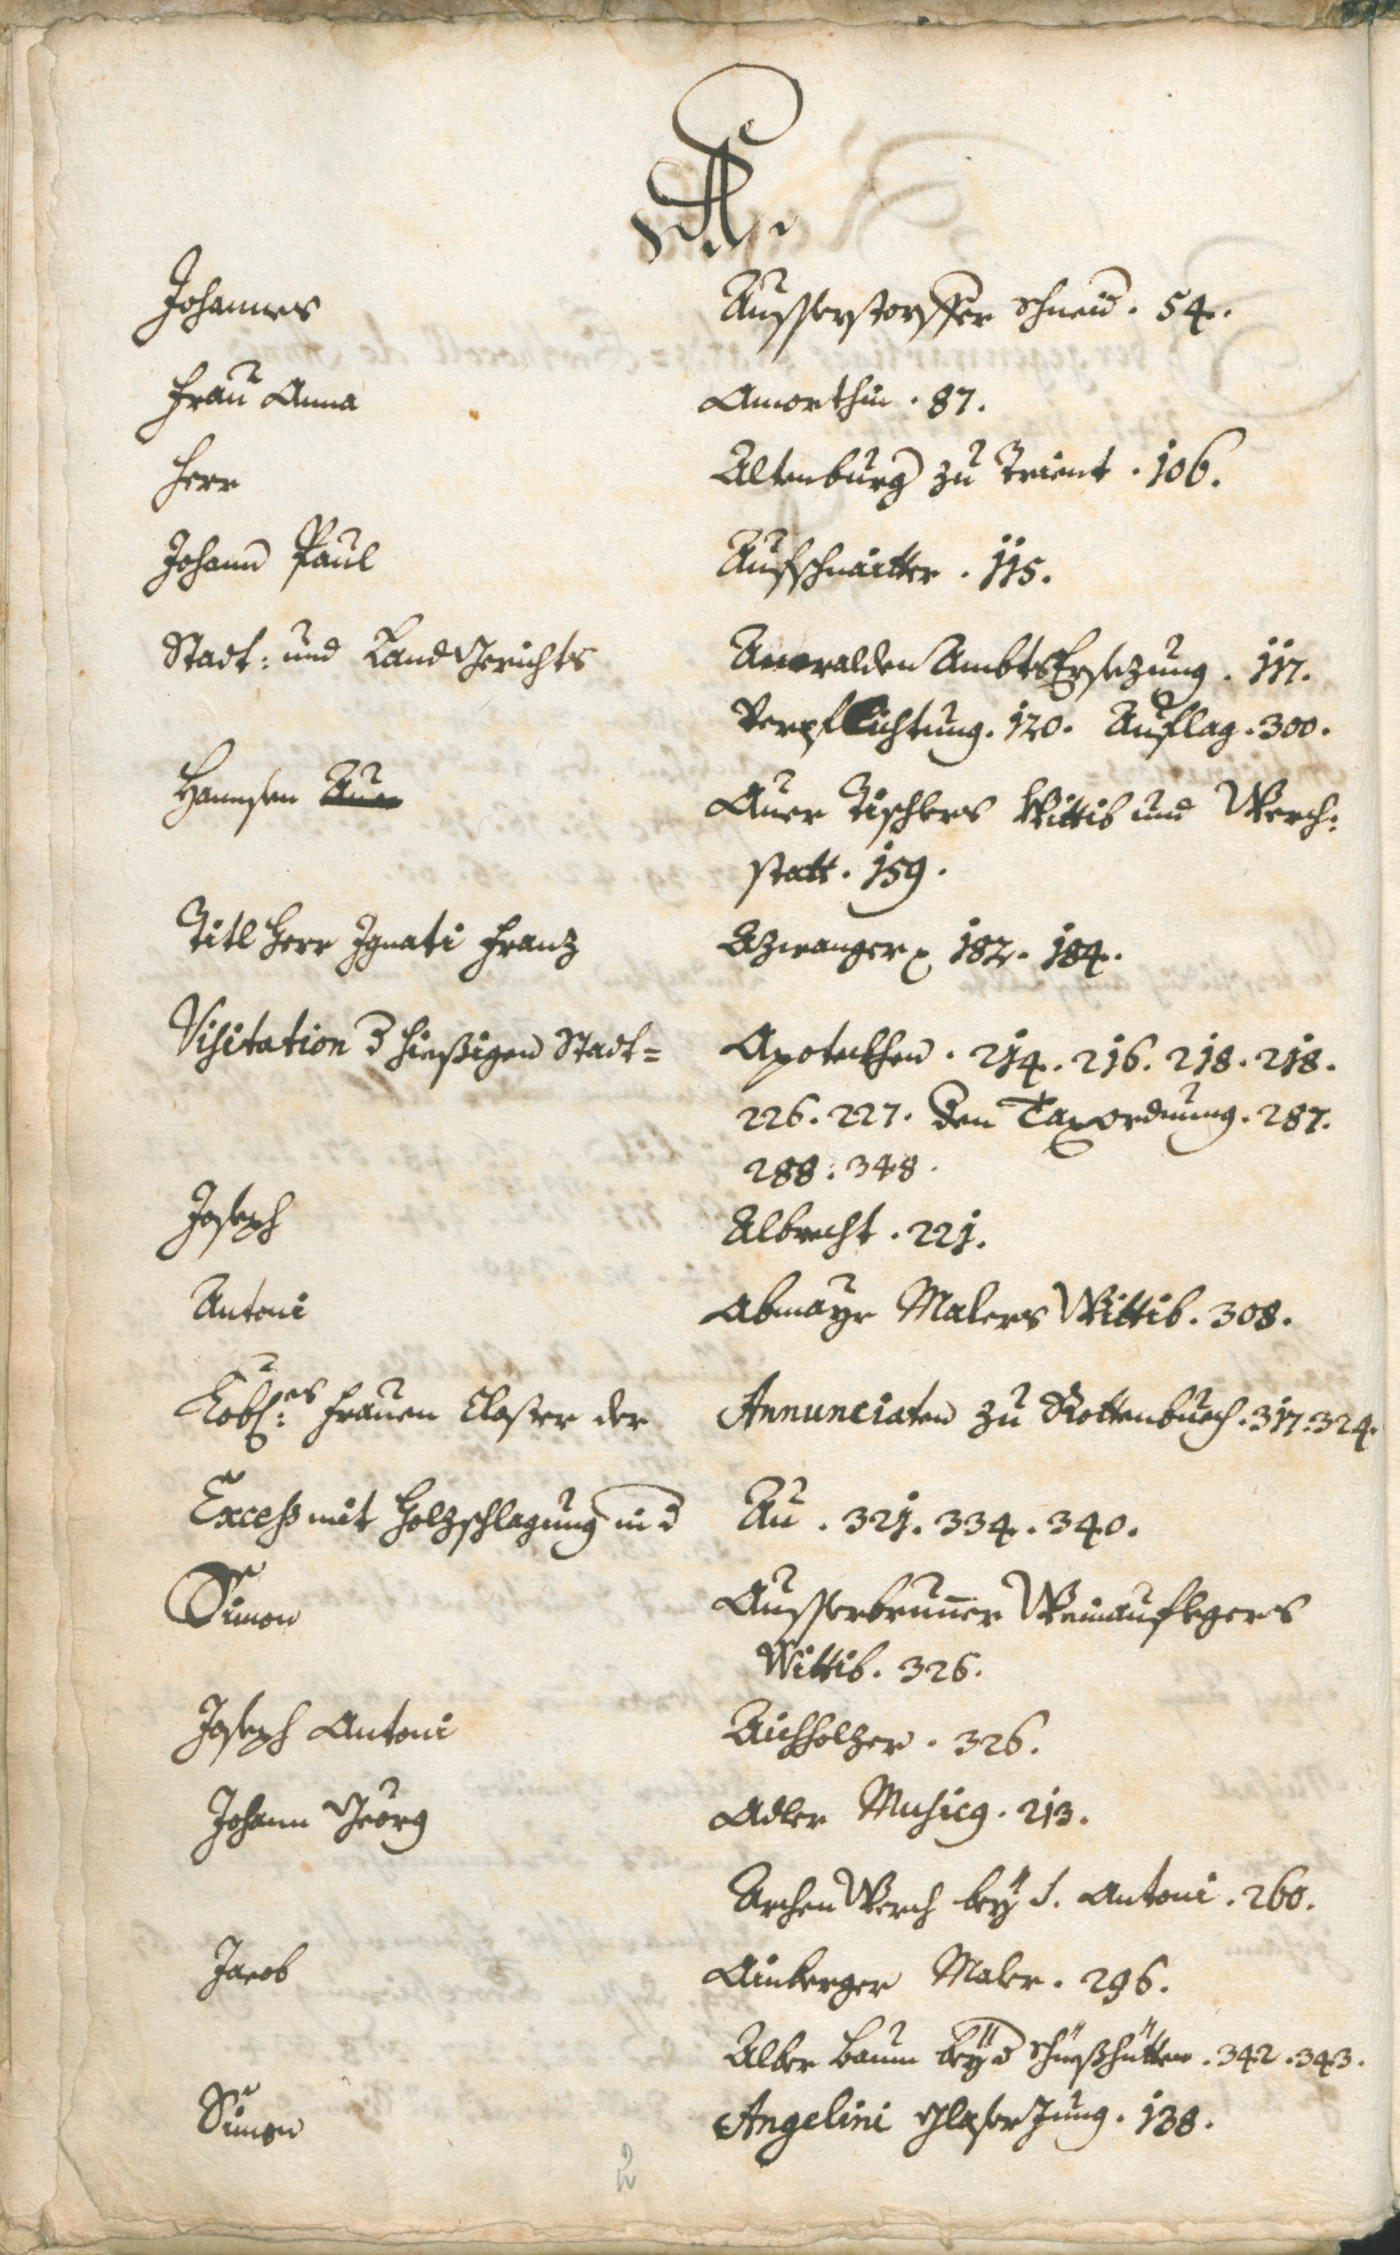 A.
Johannes Ausserstorffer Schneid. 54.
Frau Anna Amorthin. 87.
Herr Altenburg zu Trient. 106.
Johann Paul Aufschnaitter. 115.
Stadt: und LandGerichts Anwalden AmbtsErsezung. 117.
Verpflichtung. 120. Auflag. 300.
Hannsen Auer Auer Tischlers Wittib und Werch:
statt. 159.
Titl Herr Ignati Franz Azwanger 182. 184.
Visitation d hießigen Stadt= Apotecken. 214. 216. 218. 218.
226. 227. den Taxordnung. 287.
288. 348.
Joseph Albrecht. 221.
Antoni Abmayr Malers Wittib. 308.
Löbl:es Frauen Closter der Annunciaten zu Rottenbuech. 317. 324.
Excess mit Holzschlagung in d Au. 321. 334. 340.
Simon Ausserbrunner Weinauflegers
Wittib. 326.
Joseph Antoni Aichholzer. 326.
Johann Georg Adler Musicq. 213.
Archen Werch bey S. Antoni. 260.
Jacob Ainberger Maler. 296.
Alber Baum bey d Schießhütten. 342. 343.
Simon Angelini Glaser Jung. 138.
2